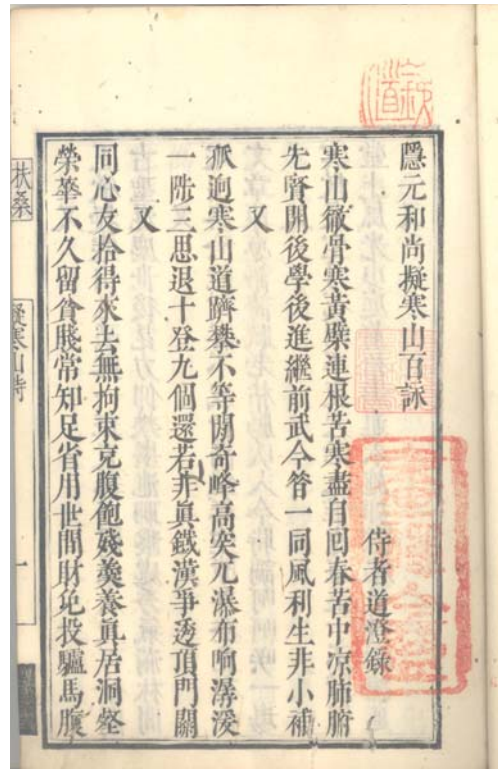 隱元和尚擬寒山百詠
侍者道澄錄
寒山徹骨寒黃檗連根苦寒盡自回春苦中凉肺腑
先賢開後學後進繼前武今昝一同風利生非小補
又
孤逈寒山道躋攀不等閒奇峰高突兀瀑布响潺湲
一陞三思退十登九個還若非眞鐵漢爭透頂門關
又
同心友拾得來去無拘束充腹飽殘羮養眞居洞壑
榮華不久留貧賤常知足省用世間財免投驢馬腹
扶桑
擬寒山詩
一